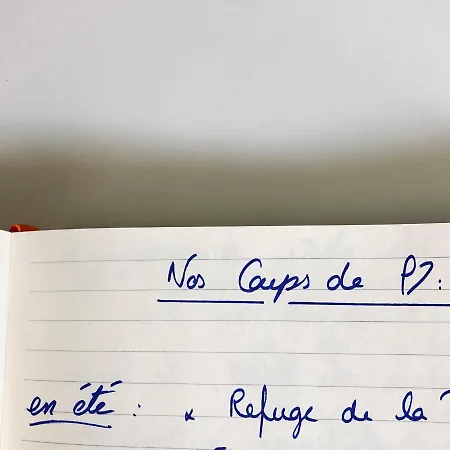 Nos Coups de
en été : x Refuge de la